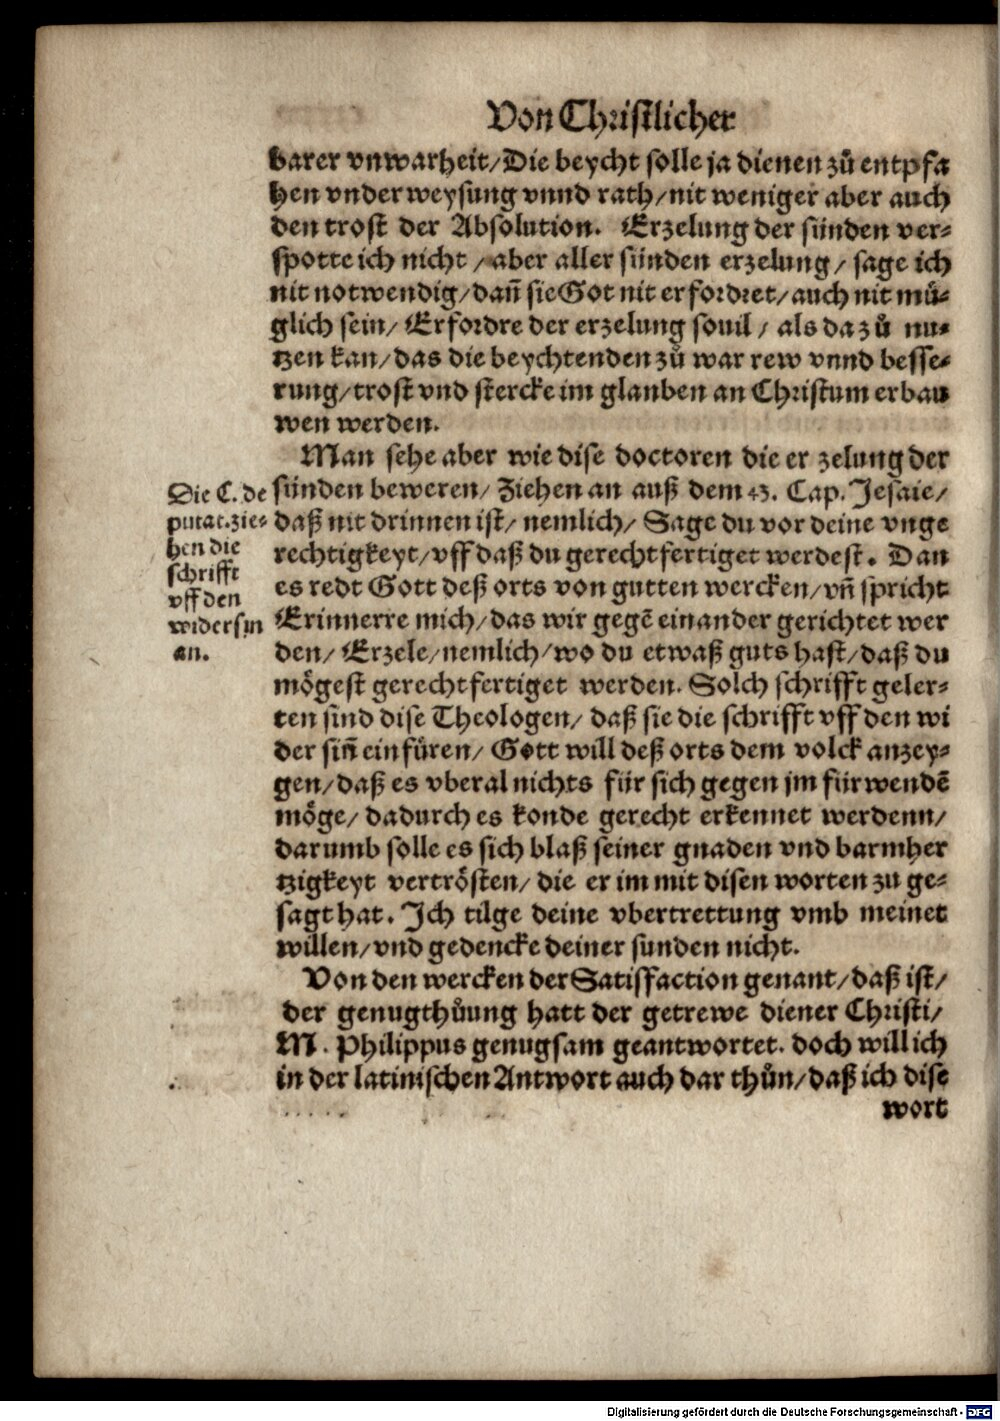 Von Christlicher
barer vnwarheit/Die beycht solle ja dienen zů entpfa
hen vnderweysung vnnd rath/nit weniger aber auch
den trost der Absolution. Erzelung der sünden ver-
spotte ich nicht/aber aller sünden erzelung/sage ich
nit notwendig/dañ sie Got nit erfordret/auch nit mü-
glich sein/Erfordre der erzelung souil/als da zů nu-
tzen kan/das die beychtenden zů war rew vnnd besse-
rung/trost vnd stercke im glauben an Christum erbau
wen werden.
Man sehe aber wie dise doctoren die er zelung der
sünden beweren/Ziehen an auß dem 43. Cap. Jesaie/
daß nit drinnen ist/nemlich/Sage du vor deine vnge
rechtigkeyt/vff daß du gerechtfertiget werdest. Dan
es redt Gott deß orts von gutten wercken/vñ spricht
Erinnerre mich/das wir gegē einander gerichtet wer
den/Erzele/nemlich/wo du etwaß guts hast/daß du
mögest gerechtfertiget werden. Solch schrifft geler-
ten sind dise Theologen/daß sie die schrifft vff den wi
der siñ einfüren/Gott will deß orts dem volck anzey-
gen/daß es vberal nichts für sich gegen jm fürwendē
möge/dadurch es konde gerecht erkennet werdenn/
darumb solle es sich blaß seiner gnaden vnd barmher
tzigkeyt vertrösten/die er im mit disen worten zu ge-
sagt hat. Ich tilge deine vbertrettung vmb meinet
willen/vnd gedencke deiner sunden nicht.
Von den wercken der Satisfaction genant/daß ist/
der genugthůung hatt der getrewe diener Christi/
M. Philippus genugsam geantwortet. doch will ich
in der latinischen Antwort auch dar thůn/daß ich dise
wort
Die C. de
putat.zie-
hen die
schrifft
vff den
widersin
an.
Digitalisierung gefördert durch die Deutsche Forschungsgemeinschaft - DFG